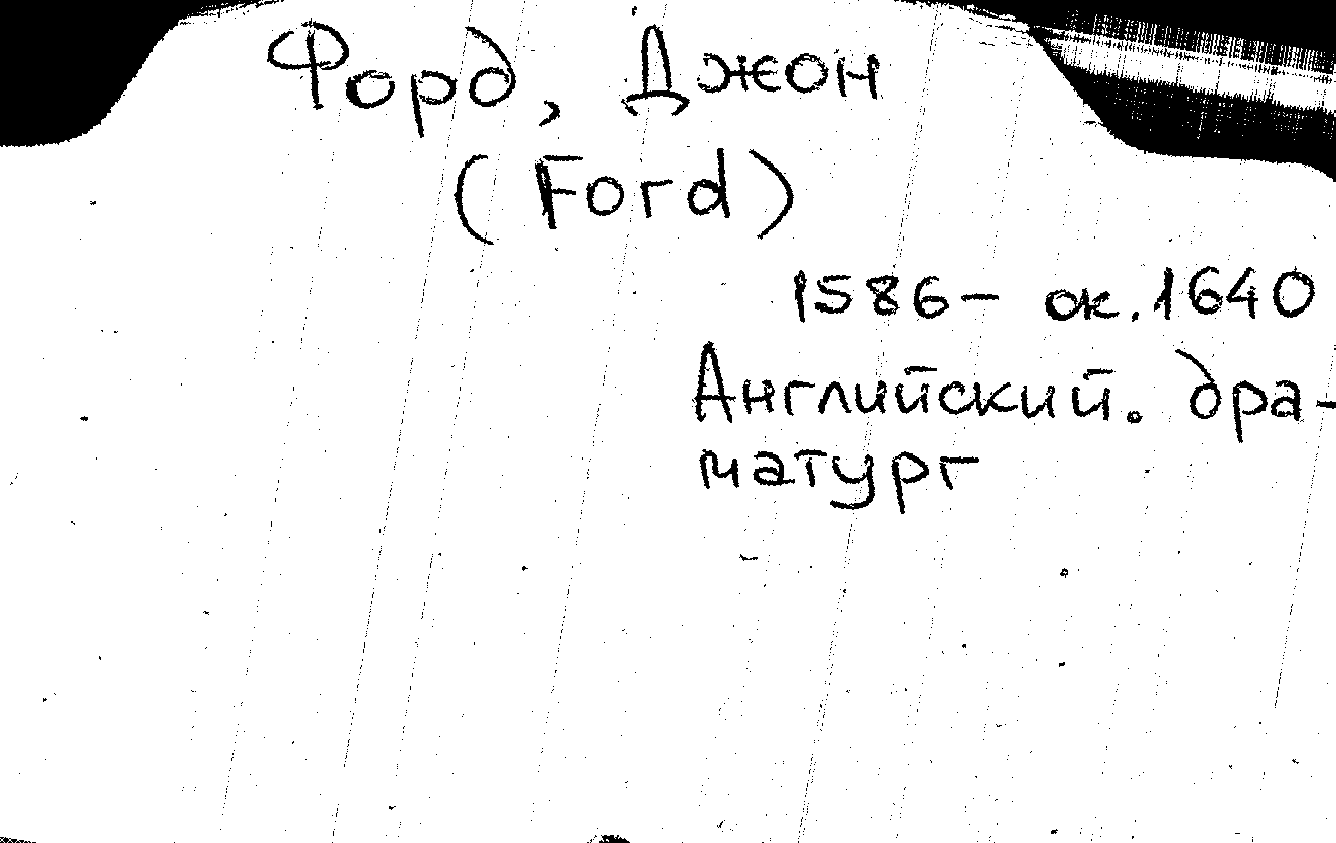 Форд, Джон
(Ford)
1586 – ок. 1640
Английский. дра-
матург